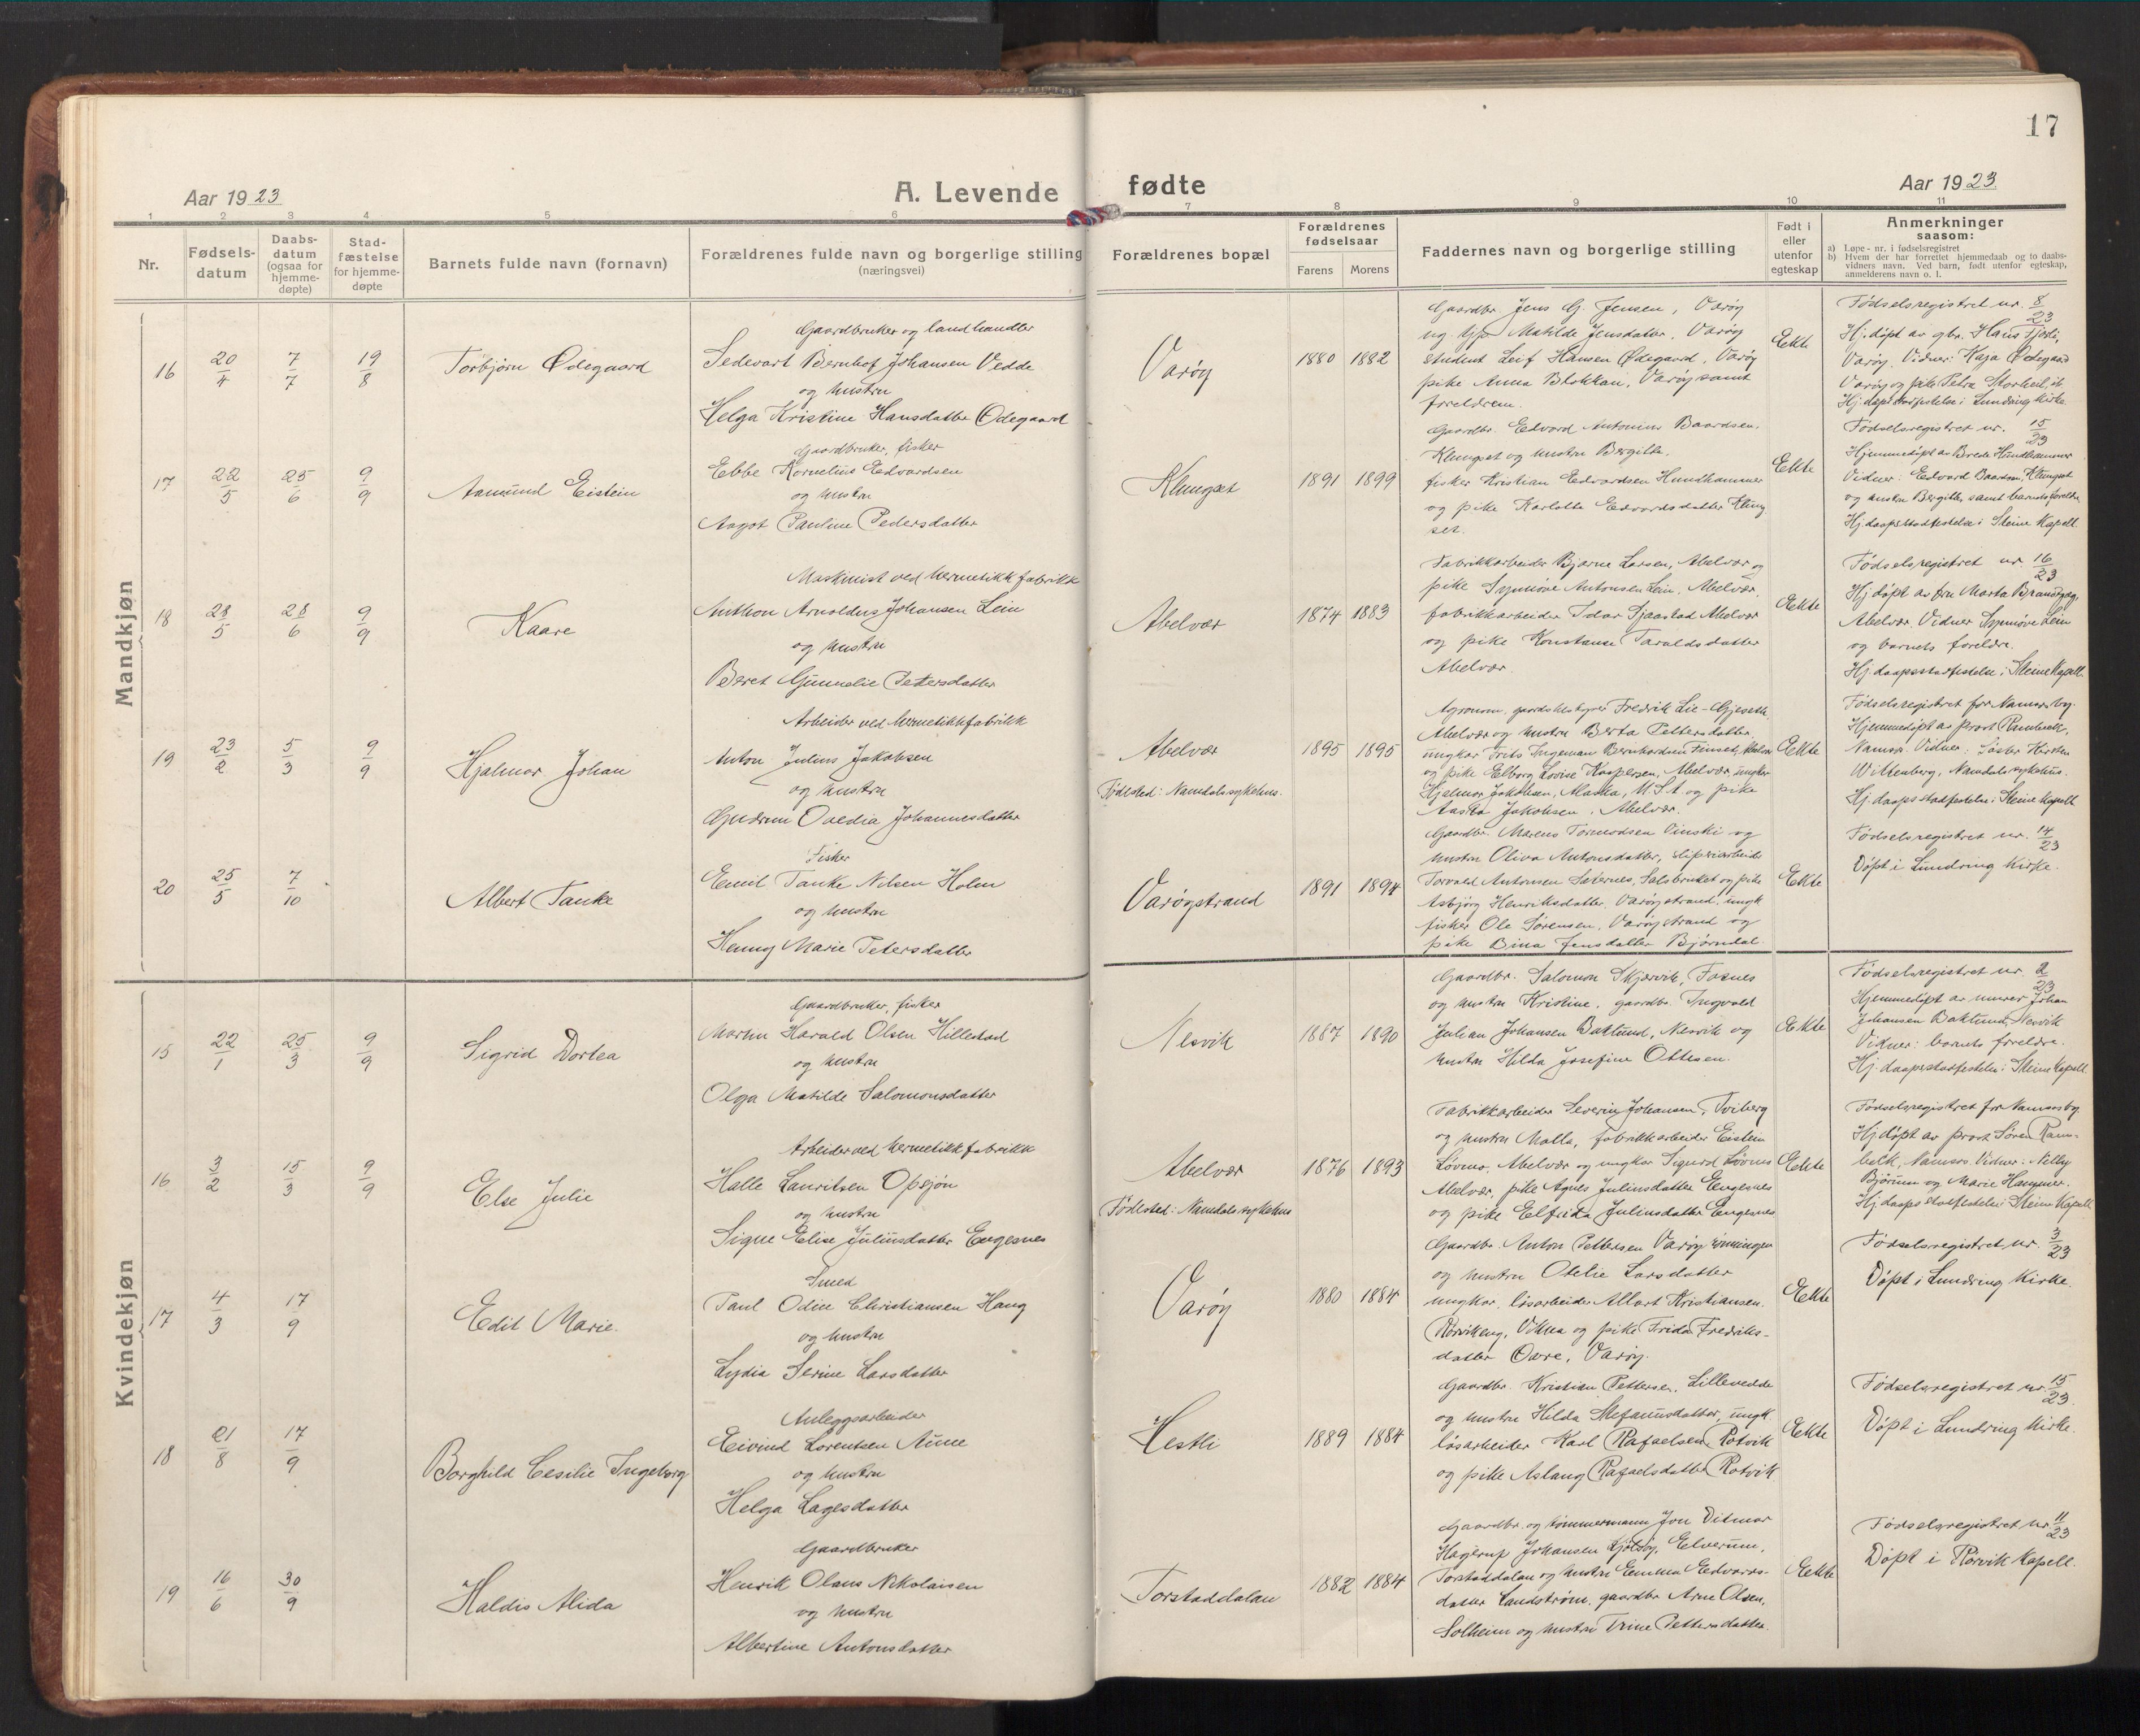 17
Aar 1923
A. Levende fødte
Aar 1923
1 2 3 4 5 6 7 8 9 10 11
Nr.
Fødsels-
datum
Daabs-
datum
(ogsaa for
hjemme-
døpte)
Stad-
fæstelse
for hjemme-
døpte
Barnets fulde navn (fornavn)
Forældrenes fulde navn og borgerlige stilling
(næringsvei)
Forældrenes bopæl
Forældrenes
fødselsaar
Farens Morens
Faddernes navn og borgerlige stilling
Født i
eller
utenfor
egteskap
Anmerkninger
saasom:
a) Løpe-nr. i fødselsregistret
b) Hvem der har forrettet hjemmedaab og to daabs-
vidners navn. Ved barn, født utenfor egteskap,
anmelderens navn o. l.
Mandkjøn
16 20/4 7/7 19/8 Torbjørn Ødegaard
Gaardbruker og landhandler
Sedevart Bernhof Johansen Vedde
og hustru
Helga Kristine Hansdatter Ødegaard
Varøy 1880 1882
Gaardbr. Jens G. Jensen, Varøy
og Matilde Jensdatter, Varøy
student Leif Hansen Ødegaard, Varøy
pike Anna Blokkan, Varøy samt
foreldrene.
Ekte
Fødselsregistret nr. 8/23
Hj.døpt av gbr. Hans Fjeseli,
Varøy. Vidner: Kaja Ødegaard
Varøy og pike Petra Storheil,
Hj.døpt stadfestelse i Lundring Kirke.
17 22/5 25/6 9/9 Aamund Eistein
Gaardbruker, fisker
Ebbe Kornelius Edvardsen
og hustru
Aagot Pauline Pedersdatter
Klungset 1891 1899
Gaardbr. Edvard Antonius Baardsen,
Klungset og hustru Bergitte.
fisker Kristian Edvardsen Hundhammer
og pike Karlotte Edvardsdatter Klung-
set.
Ekte
Fødselsregistret nr. 15/23
Hjemmedøpt av Hundhammer
Vidner: Edvard Baardsen, Klungset
og hustru Bergitte, samt barnets foreldre
Hj.daapsstadfestelse i Steine Kapell.
18 28/5 28/6 9/9 Kaare
Maskinist ved hermetikkfabrikk
Anthon Arnoldus Johansen Lein
og hustru
Beret Gunnelie Petersdatter
Abelvær 1874 1883
Fabrikkarbeider Bjarne Larsen, Abelvær og
pike Synnøve Antonsen Lein, Abelvær.
fabrikkarbeider Idar Sjaastad Abelvær
og pike Konstanse Taraldsdatter
Abelvær
Ekte
Fødselsregistret nr 16/23
Hj.døpt av fru Marta
Abelvær. Vidner Synnøve Lein
og barnets foreldre.
Hj.daapsstadfestelse i Steine Kapell.
19 23/2 5/3 9/9 Hjalmar Johan
Arbeider ved hermetikkfabrikk
Anton Julius Jakobsen
og hustru
Gudrun Ovedia Johannesdatter
Abelvær
Fødested: Namdals sykehus.
1895 1895
Agronom, gaardsbestyrer Fredrik Lie-Gjeseth
Abelvær og hustru Berta Pettersdatter,
ungkar Frits Ingeman Bernhardsen Finset, Abelvær
og pike Elborg Lovise Kaspersen, Abelvær, ungkar
Hjalmar Jakobsen, Alaska, U.S.A. og pike
Aasta Jakobsen, Abelvær.
Ekte
Fødselsregistret for Namsos by.
Hjemmedøpt av prost
Namsos. Vidner: Søster Kirsten
Wittenberg, Namdals sykehus.
Hj.daapsstadfestelse i Steine Kapell
20 25/5 7/10 Albert Tanke
Fisker
Emil Tanke Nilsen Holm
og hustru
Henny Marie Petersdatter
Varøystrand 1891 1894
Gaardbr. Marius Tormodsen Vinski og
hustru Oliva Antonsdatter, sliperiarbeider
Torvald Antonsen Saternes, Salsbruket og pike
Asbjørg Henriksdatter, Varøystrand, ungk
fisker Ole Sørensen, Varøystrand og
pike Bina Jensdatter Bjørndal
Ekte
Fødselsregistret nr. 14/23
Døpt i Lundring Kirke.
Kvindekjøn
15 22/1 25/3 9/9 Sigrid Dortea
Gaardbruker, fisker
Martin Harald Olsen Hillestad
og hustru
Olga Matilde Salomonsdatter
Nesvik 1887 1890
Gaardbr. Salomon Skjærvik, Fosnes
og hustru Kristine, gaardbr. Ingvald
Julian Johansen Baklund, Nesvik og
hustru Hilda Josefine Ottesen.
Ekte
Fødselsregistret nr 2/23
Hjemmedøpt av murer Johan
Johansen Baklund, Nesvik
Vidner: barnets foreldre.
Hj.daapsstadfestelse i Steine Kapell
16 3/2 15/3 9/9 Else Julie
Arbeider ved hermetikkfabrikk
Halle Lauritsen Opsjøn
og hustru
Signe Elise Juliusdatter Engesnes
Abelvær
Fødested: Namdals sykehus
1876 1893
Fabrikkarbeider Severin Johansen, Tviberg
og hustru Malla, fabrikkarbeider Eistein
Løvmo, Abelvær og ungkar Sigurd Løvmo
Abelvær, pike Agnes Juliusdatter Engesnes
og pike Elfrida Juliusdatter Engesnes
Ekte
Fødselsregistret for Namsos by
Hj.døpt av prost Søren
Namsos. Vidner: Nelly
Bjørum og Marie Hammer.
Hj.daapsstadfestelse i Steine Kapell
17 4/3 17/9 Edit Marie.
Smed
Paul Odin Christiansen Haug
og hustru
Lydia Serine Larsdatter
Varøy 1880 1884
Gaardbr. Anton Pettersen Varøy rønningen
og hustru Otelie Larsdatter
ungkar, løsarbeider Albert Kristiansen.
Rørvikeng, Vikna og pike Frida Fredriks-
datter Øvre, Varøy.
Ekte
Fødselsregistret nr. 3/23
Døpt i Lundring Kirke.
18 21/8 17/9 Borghild Cesilie Ingeborg
Anleggsarbeider
Eivind Lorentsen Aune
og hustru
Helga Lagesdatter
Hestli 1889 1884
Gaardbr. Kristian Pettersen, Lillevedde
og hustru Hilda Stefanusdatter, ungk.
løsarbeider Karl Rafaelsen Rotvik
og pike Aslaug Rafaelsdatter Rotvik
Ekte
Fødselsregistret nr. 15/23
Døpt i Lundring Kirke.
19 16/6 30/9 Haldis Alida
Gaardbruker
Henrik Olaus Nikolaisen
og hustru
Albertine Antonsdatter
Torstaddalan 1882 1884
Gaardbr. og tømmermann Jon Ditmar
Hagerup Johansen Kjølsøy, Elverum,
Torstaddalan og hustru Emma Edvards-
datter Landstrøm, gaardbr Arne Olsen,
Solheim og hustru Trine Pettersdatter.
Ekte
Fødselsregistret nr 11/23
Døpt i Rørvik Kapell.